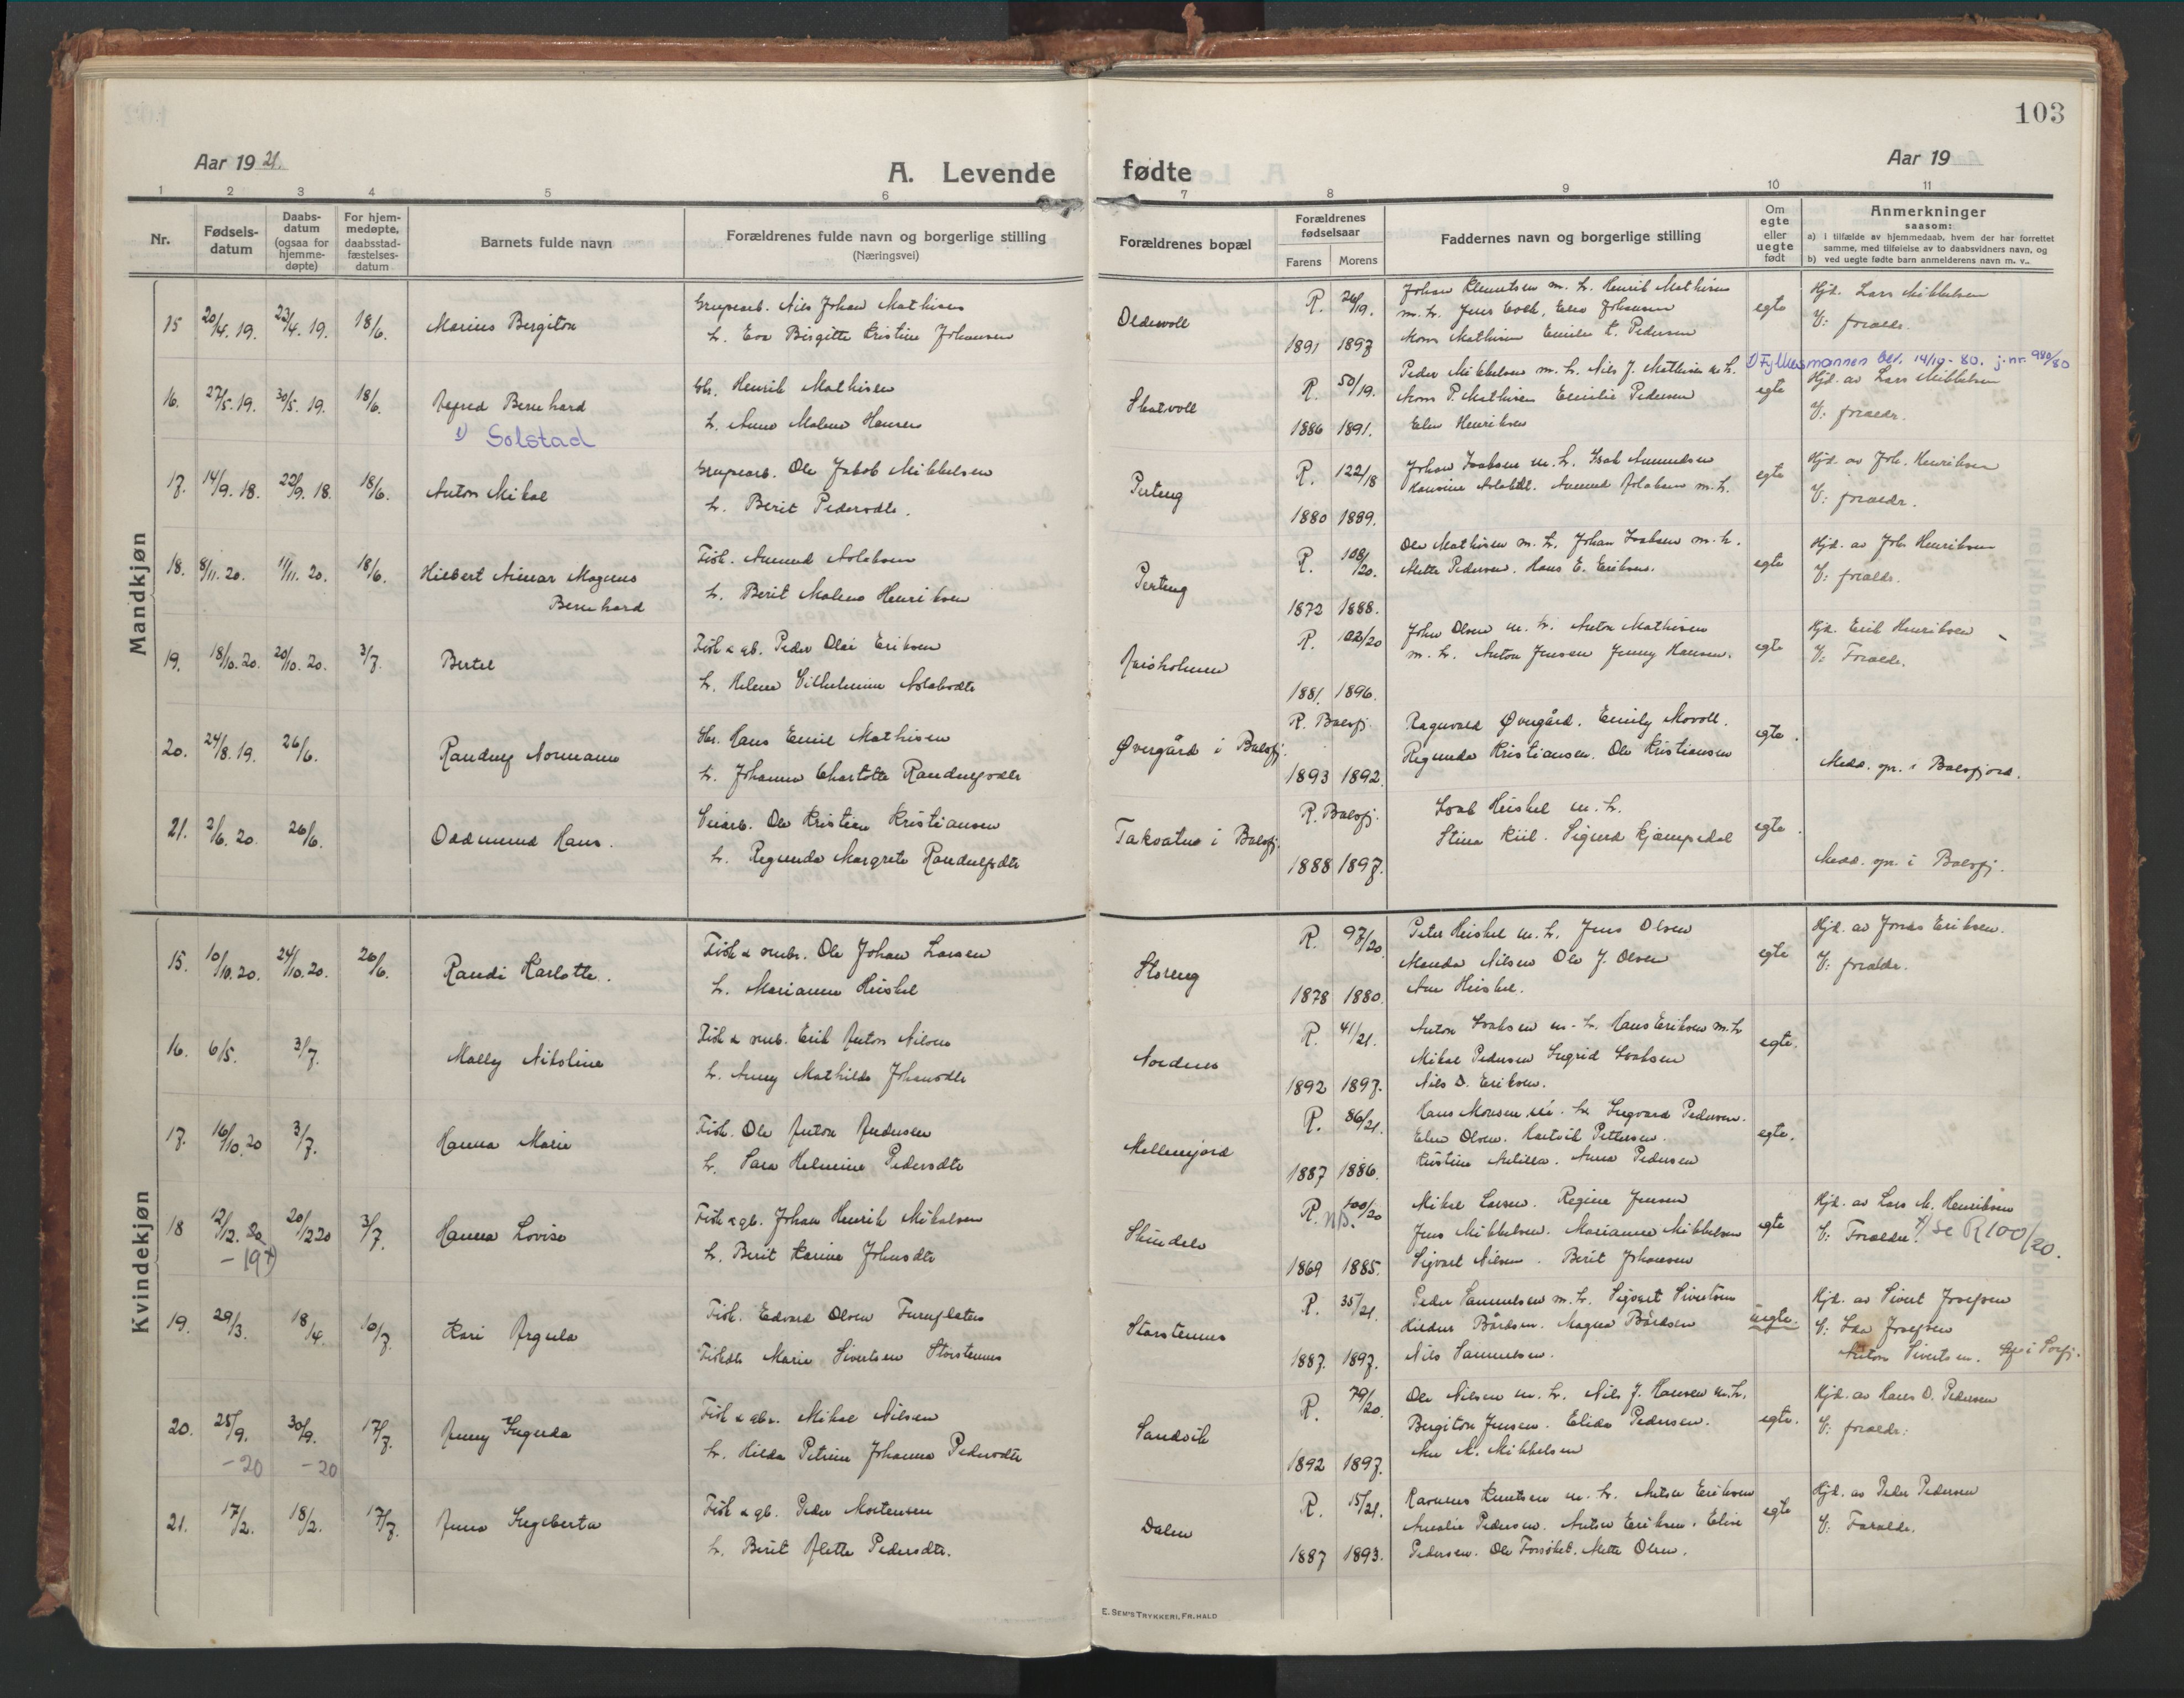 103
Aar 19 21.
A. Levende fødte
Aar 19
1 2 3 4 5 6 7 8 9 10 11
Nr.
Fødsels-
datum
Daabs-
datum
(ogsaa for
hjemme-
døpte)
For hjem-
medøpte,
daabsstad-
fæstelses-
datum
Barnets fulde navn
Forældrenes fulde navn og borgerlige stilling
(Næringsvei)
Forældrenes bopæl
Forældrenes
fødselsaar
Farens Morens
Faddernes navn og borgerlige stilling
Om
egte
eller
uegte
født
Anmerkninger
saasom:
a) i tilfælde av hjemmedaab, hvem der har forrettet
samme, med tilføielse av to daabsvidners navn, og
b) ved uegte fødte barn anmelderens navn m. v..
Mandkjøn
15 20/4. 19. 23/4. 19. 18/6. Marius Bergiton
Grupearb. Nils Johan Mathisen
h. Eva Birgitte Kristine Johansen
Oldervoll
R. 26/19.
1891 1897
Johan Klemetsen m. h. Henrik Mathisen
m. h. Jens Johansen
Mons Mathisen Emilie K. Pedersen
egte
Hjd. Lars Mikkelsen
V: foraldr.
16. 27/5. 19. 30/5. 19. 18/6. Alfred Bernhard
1) Solstad
Gbr. Henrik Mathisen
h. Anne Malene Hansen
Skatvoll
R. 50/19.
1886 1891.
Peder Mikkelsen m. h. Nils J. Mathisen m. h.
Mons P. Mathisen Emilie Pedersen
Elen Henriksen
egte
1) Fylkesmannen bev. 14/10-80. j.nr. 980/80
Hjd. av Lars Mikkelsen
V: foraldr.
17. 14/9. 18. 22/9. 18. 18/6. Anton Mikal
Grupearb. Ole Jakob Mikkelsen
h. Berit Pedersdtr.
Perteng
R. 122/18
1880 1889.
Johan Isaksen m. h. Isak Amundsen
Amund Aslaksen m. h.
egte
Hjd. av Joh. Henriksen
V: foraldr.
18. 8/11. 20. 11/11. 20. 18/6. Hilbert Magnus
Bernhard
Fisk. Amund Aslaksen
h. Berit Malene Henriksen
Perteng
R. 108/20.
1872 1888.
Ole Mathisen m. h. Johan Isaksen m. h.
Mette Pedersen. Hans E. Eriksen.
egte
Hjd. av Joh Henriksen
V: foraldr.
19. 18/10. 20. 20/10. 20. 3/7. Bertel
Fisk & gb. Peder Olai Eriksen
h. Helene Vilhelmine Aslaksdtr
R. 102/20
1881. 1896.
Johan Olsen m. h. Anton Mathisen
m. h. Anton Jensen Jenny Hansen.
egte
Hjd. Erik Henriksen
V: Foraldr.
20. 24/8. 19. 26/6. Randulf Normann
Gbr. Hans Emil Mathisen
h. Johanne Charlotte Randulfsdtr
Øvergård i Balsfj.
R. Balsfj.
1893 1892.
Ragnvald Øvergård. Emily Movoll.
Regunda Kristiansen. Ole Kristiansen
egte.
Medd. spr. i Balsfjord.
21. 2/6. 20. 26/6. Oddmund Hans.
Veiarb. Ole Kristian Kristiansen
h. Regunda Margrete Randulfsdtr
Taksvatn i Balsfj.
R. Balsfj.
1888 1897.
Isak Heiskel m. h.
Stina Kiil. Sigurd Kjæmpedal
egte.
Medd. spr. i Balsfj.
Kvindekjøn
15. 10/10. 20. 24/10. 20. 26/6. Randi Karlotte.
Fisk & smbr. Ole Johan Larsen
h. Marianne Heiskel
Storeng
R. 97/20
1878 1880.
Peter Heiskel m. h. Jens Olsen
Manda Nilsen Ole J. Olsen
Ane Heiskel.
egte
Hjd. av Jonas Eriksen.
V: foraldr.
16. 6/5. 3/7. Molly Nikoline
Fisk & smb. Erik Anton Nilsen
h. Anny Mathilde Johansdtr
Nordnes
R. 41/21.
1892 1897.
Anton Isaksen m. h. Hans Eriksen m. h
Mikal Pedersen Ingrid Isaksen
Nils D. Eriksen.
egte.
17. 16/10. 20 3/7. Hanna Marie
Fisk. Ole Anton Andersen
h. Sara Helmine Pedersdtr
Mellemjord
R. 86/21.
1887 1886.
Hans Monsen m. h. Ingvard Pedersen.
Elen Olsen. Hartvik Pettersen.
Kristine Antilla. Anna Pedersen
egte.
18 12/12. 20 20/12 20 3/7. Hanna Lovise
-19 1)
Fisk & gb. Johan Henrik Mikalsen
h. Berit Karine Johnsdtr
Skindelv
R. 100/20
NB.
1869 1885.
Mikal Larsen. Regine Jensen
Jens Mikkelsen. Marianne Mikkelsen
Sigvart Nilsen. Berit Johansen
egte
Hjd. av Lars M. Henriksen
V: Foraldr. 1) se R 100/20.
19. 29/3. 18/4. 10/7. Kari Argula
Fisk. Edvard Olsen Furuflaten
Fiskedtr Marie Sivertsen Storstennes
Storstennes
R. 35/21.
1887. 1897.
Peder Samuelsen m. h. Sigvart Sivertsen
Hildur Bårdsen. Magna Bårdsen
Nils Samuelsen.
uegte.
Hjd. av Sivert Josefsen
V: Ida Josefsen
Anton Sivertsen.
20. 25/9. 30/9. 17/7. Jenny Ingerda
-20 -20
Fisk & gbr. Mikal Nilsen
h. Hilda Petrine Johanna Pedersdtr
Sandvik
R. 79/20.
1892 1897.
Ole Nilsen m. h. Nils J. Hansen m. h.
Bergiton Jensen. Elida Pedersen.
Ane M. Mikkelsen
egte.
Hjd. av Hans D. Pedersen
V: foraldr:
21. 17/2. 18/2. 17/7. Anna Ingeberta
Fisk & gb. Peder Mortensen
h. Berit Alette Pedersdtr.
Dalen
R. 15/21.
1887 1893.
Rasmus Knutsen m. h. Anton Eriksen
Amalie Pedersen. Anton Eriksen. Elise
Pedersen. Ole Mette Olsen.
egte
Hjd. av Peder Pedersen
V: Foraldr.
E. SEM'S TRYKKERI, FR.HALD